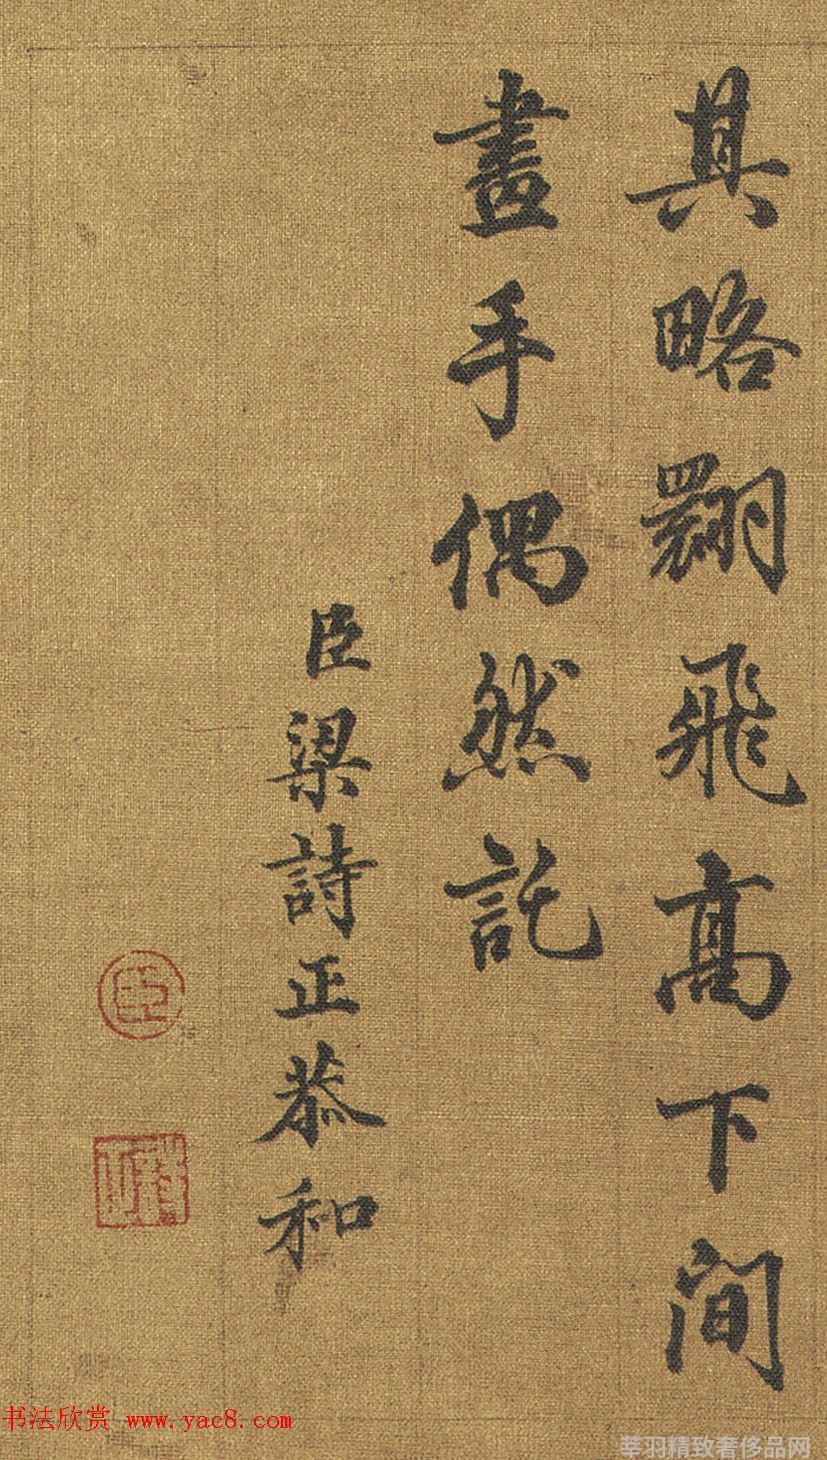 其略翾飛高下間
畫手偶然託
臣梁詩正恭和
臣
书法欣赏 www.yac8.com
莘羽精致奢侈品网